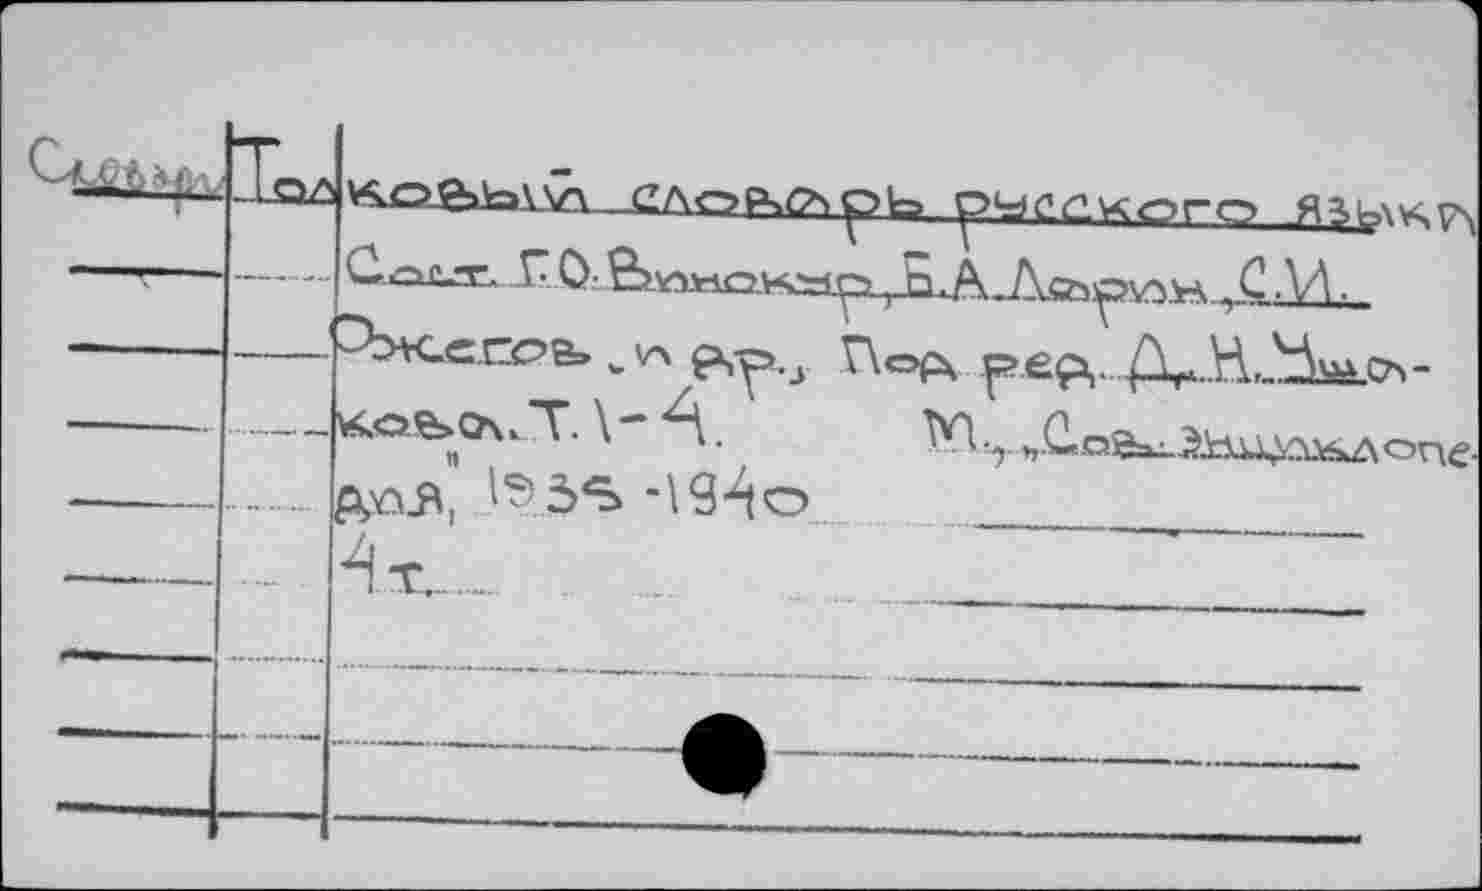 Словари Толковый словарь русского языка
Сост. Г.О. Винокур, Б.А. Ларин, С.И.
Ожегов, и др., Под ред. Д.Н. Уша-
кова. Т. 1-4. М., „Сов. энциклопе-
дия", 1935-1940
4 т.